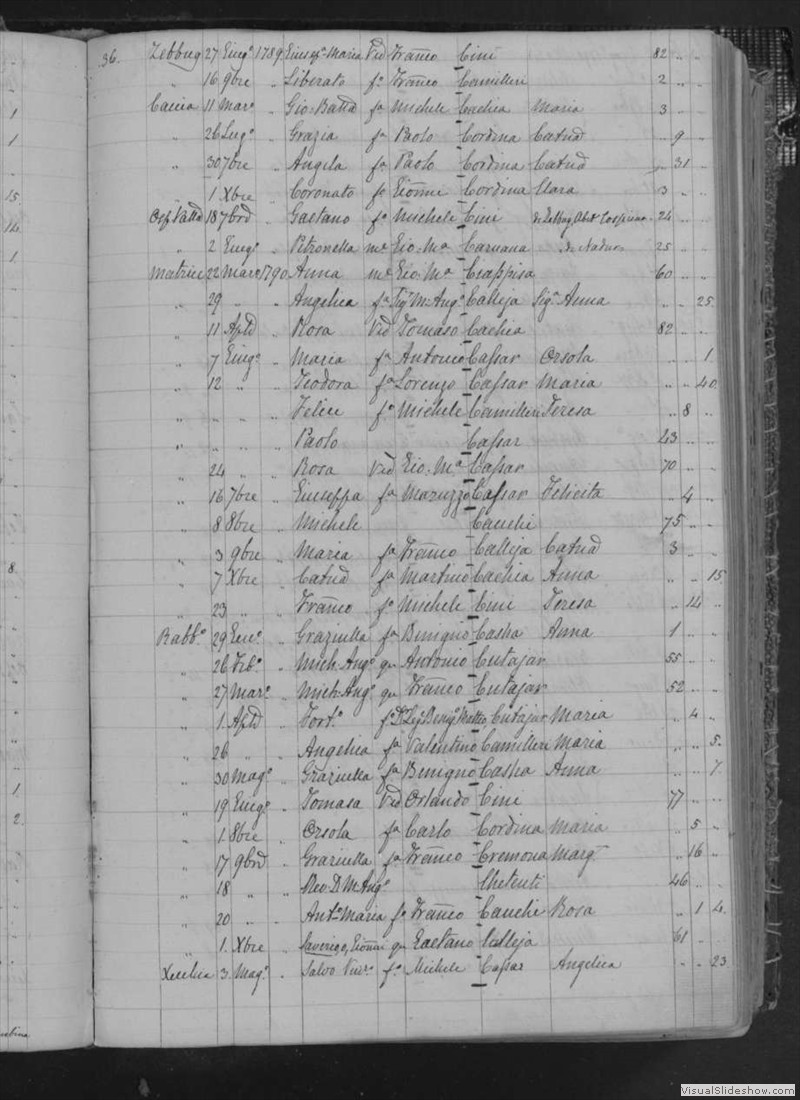 36. Zebbug 27 Giug.o 1789 Giusep.a Maria Vid Franco Cini 82 " "
" 16 9bre " Liberato fo Franco Camilleri 2 " "
Caccia 11 Mar.o " Gio: Batta fo Michele Cachia Maria 3 " "
" 26 Lug.o " Grazia fa Paolo Cordina Catna " 9 "
" 30 7bre " Angela fa Paolo Cordina Catna " 31 "
" 1 Xbre " Coronato fo Giomi Cordina Clara 3 " "
Osp. Valla 18 7bre " Gaetano fo Michele Cini de Zebbug Abit Cospicua 24 " "
" 2 Giug.o " Petronella me Gio: Ma Caruana de Nadur 25 " "
Matrice 22 Marzo 1790 Anna me Gio: Ma Ciappisa 60 " "
" 29 " " Angelica fa Sig.r M. Ang.o Calleja Sig.a Anna " " 25
" 11 Aple " Rosa Vid Tomaso Cachia 82 " "
" 7 Giug.o " Maria fa Antonio Cassar Orsola " " 1
" 12 " " Teodora fa Lorenzo Cassar Maria " " 40
" " " " Felice fo Michele Camilleri Teresa " 8 "
" " " " Paolo Cassar 43 " "
" 24 " " Rosa Vid Gio: Ma Cassar 70 " "
" 16 7bre " Giuseppa fa Maruzzo Cassar Felicita " 4 "
" 8 8bre " Michele Cauchi 75 " "
" 3 9bre " Maria fa Franco Calleja Catna 3 " "
" 7 Xbre " Catna fa Martino Cachia Anna " " 15
" 23 " " Franco fo Michele Cini Teresa " 14 "
Rabb.o 29 Gen.o " Graziella fa Benigno Casha Anna 1 " "
" 26 Feb.o " Mich: Ang.o qm Antonio Cutajar 55 " "
" 27 Mar.o " Mich: Ang.o qm Franco Cutajar 52 " "
" 1 Aple " Fort.o fo Benig.o Matteo Cutajar Maria " 4 "
" 26 " " Angelica fa Valentino Camilleri Maria " " 5
" 30 Mag.o " Graziella fa Benigno Casha Anna " " 7
" 19 Giug.o " Tomasa Vid Orlando Cini 77 " "
" 1 8bre " Orsola fa Carlo Cordina Maria " 5 "
" 17 9bre " Graziella fa Franco Cremona Marg.a " 16 "
" 18 " " Rev. D. M. Ang.o Chetcuti 46 " "
" 20 " " Ant.a Maria fa Franco Cauchi Rosa " 1 4
" 1 Xbre " Saverico, Giomi qm Gaetano Calleja 61 " "
Xeuchia 3 Mag.o " Salvo fo Michele Cassar Angelica " " 23
1
1
15
14
1
8
1
2
VisualSlideshow.com